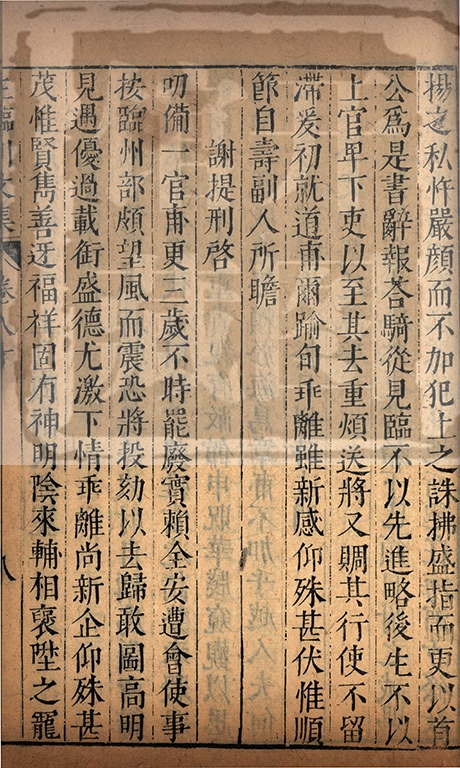 揚之私忤嚴顏而不加犯上之誅拂盛指而更以首
公爲是書辭報荅騎從見臨不以先進略後生不以
上官卑下吏以至其去重煩送將又賙其行使不留
滯爰初就道甫爾踰旬乖離雖新感仰殊甚伏惟順
節自壽副人所瞻
謝提刑啓
叨備一官甫更三歲不時罷廢實賴全安遭會使事
按臨州部頗望風而震恐將投劾以去歸敢圖高明
見遇優過載銜盛德尤激下情乖離尚新企仰殊甚
茂惟賢雋善迓福祥固有神明陰來輔相褒陞之寵
王臨川文集 卷八十 八